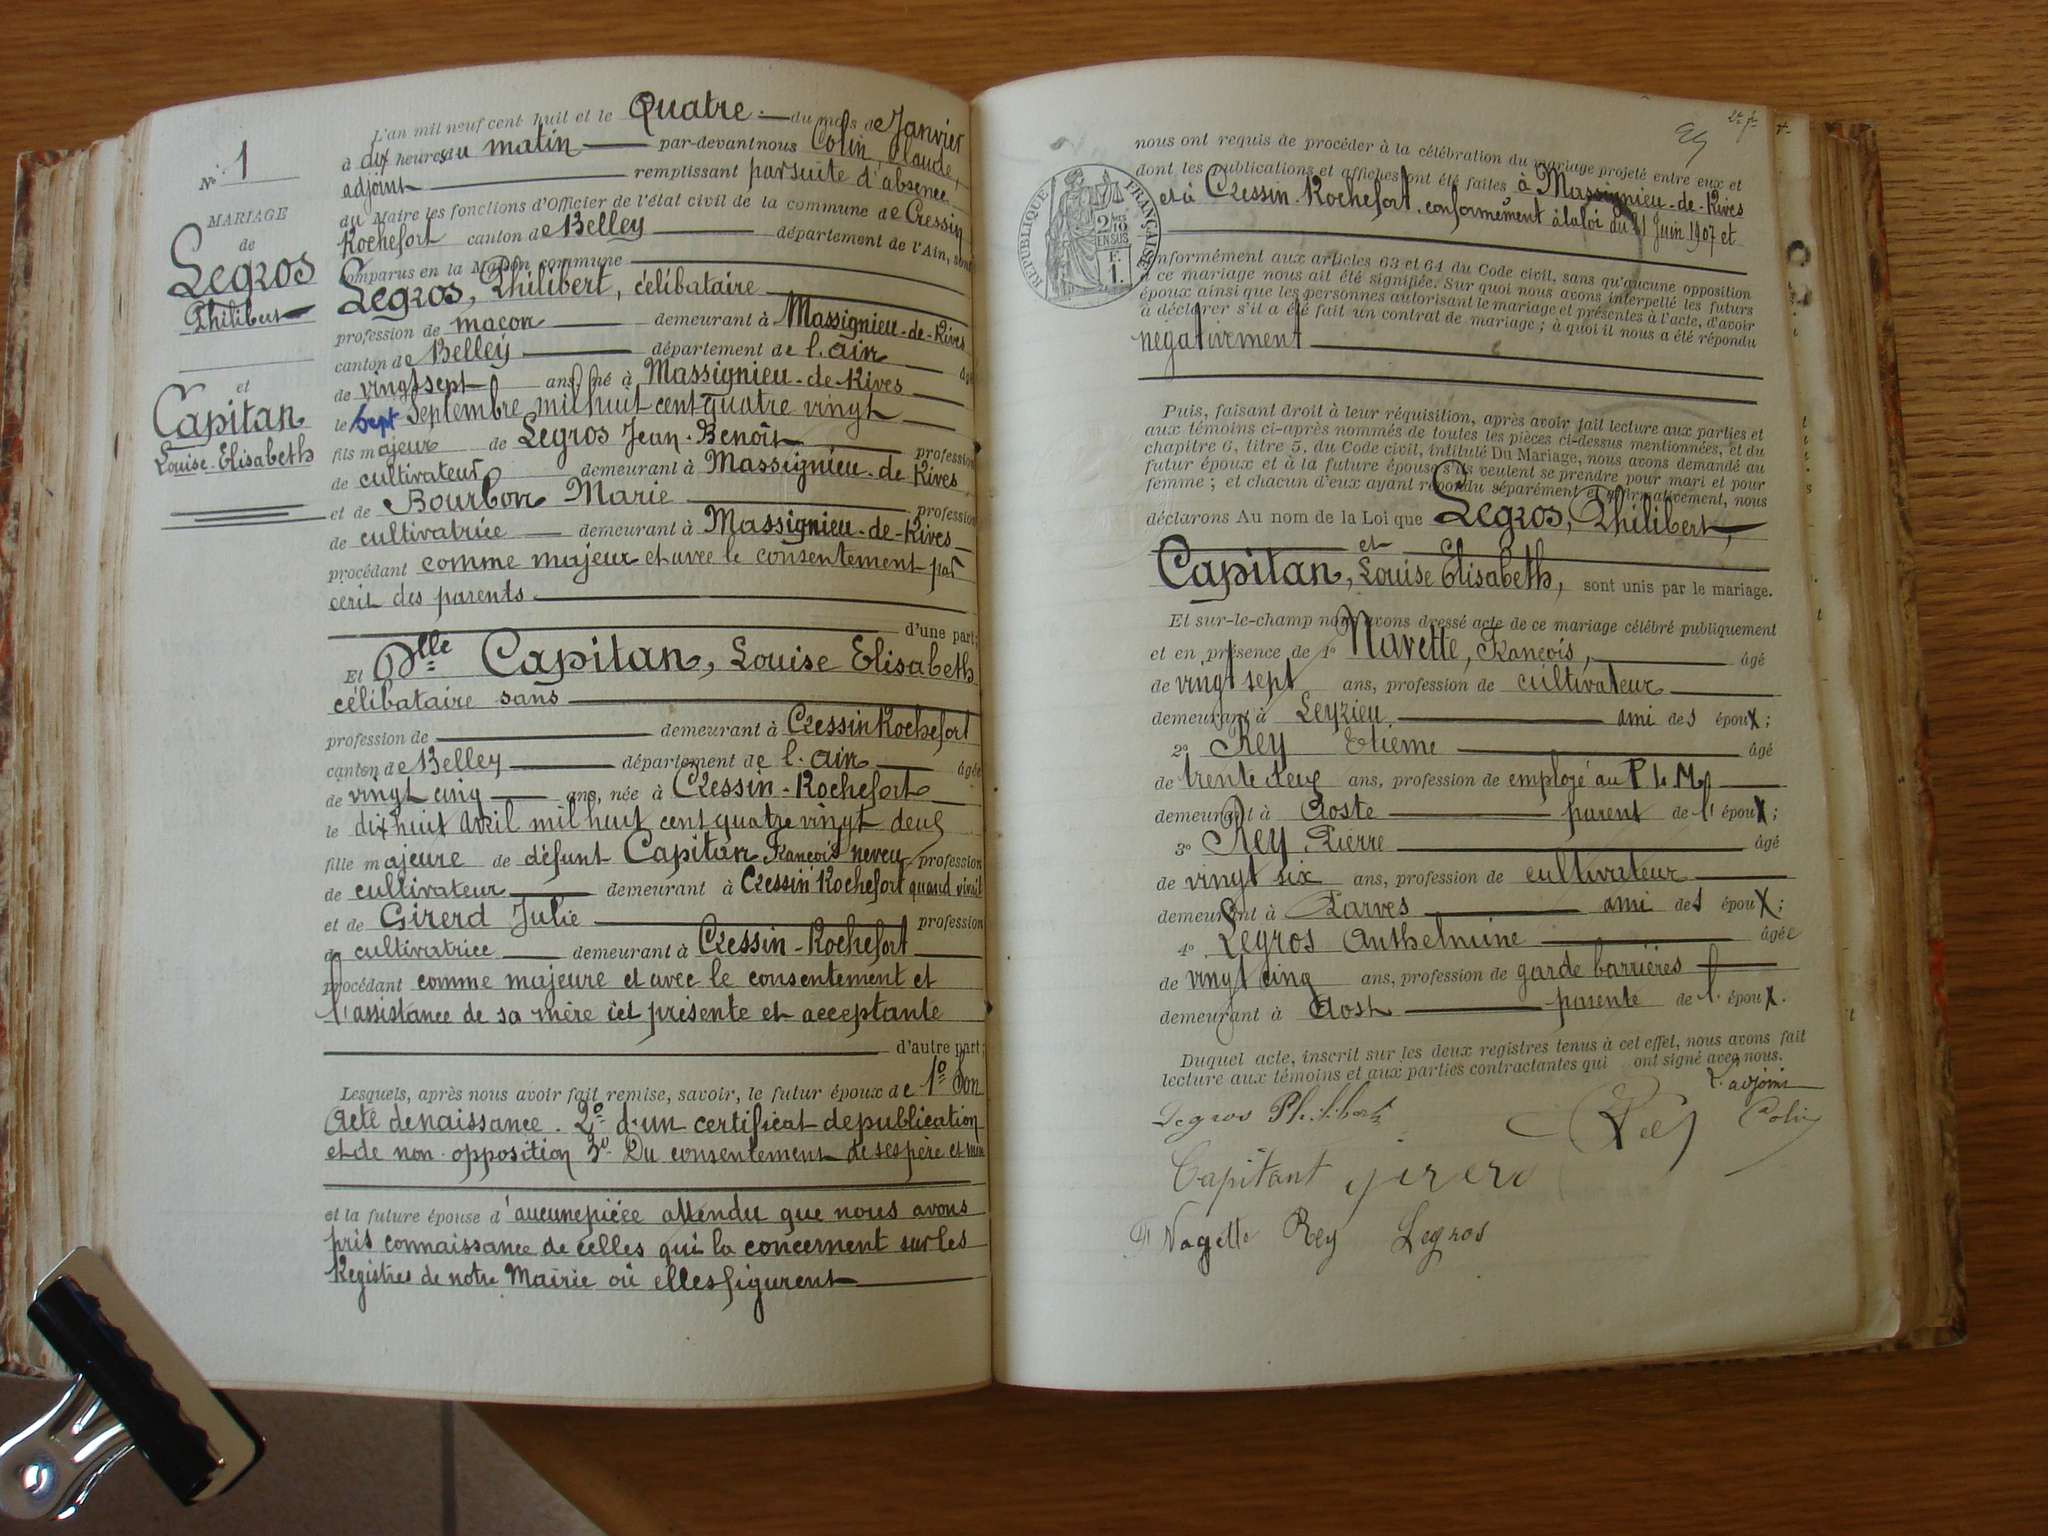 N° 1
MARIAGE
de
Legros
Philibert
et
Capitan
Louise-Elisabeth
L'an mil neuf cent huit et le Quatre du mois de Janvier
à dix heures du matin par-devant nous Colin, Claude,
adjoint remplissant par suite d'absence
du Maire les fonctions d'Officier de l'état civil de la commune de Cressin
Rochefort canton de Belley département de l'Ain, sont
comparus en la Maison commune
Legros, Philibert, célibataire
profession de maçon demeurant à Massignieu-de-Rives
canton de Belley département de l'ain âgé
de vingt sept ans, né à Massignieu-de-Rives
le Sept Septembre mil huit cent quatre vingt
fils majeur de Legros Jean-Benoît profession
de cultivateur demeurant à Massignieu-de-Rives
et de Bourbon Marie profession
de cultivatrice demeurant à Massignieu-de-Rives
procédant comme majeur et avec le consentement par
écrit des parents
d'une part;
Et Dlle Capitan, Louise Elisabeth
célibataire sans
profession de demeurant à Cressin Rochefort
canton de Belley département de l'ain âgée
de vingt cinq ans, née à Cressin-Rochefort
le dix huit Avril mil huit cent quatre vingt deux
fille majeure de défunt Capitan François neveu profession
de cultivateur demeurant à Cressin Rochefort quand vivait
et de Girerd Julie profession
de cultivatrice demeurant à Cressin-Rochefort
procédant comme majeure et avec le consentement et
l'assistance de sa mère ici présente et acceptante
d'autre part;
Lesquels, après nous avoir fait remise, savoir, le futur époux de 1° Son
Acte de naissance. 2° d'un certificat de publication
et de non opposition 3° Du consentement de ses père et mère
et la future épouse d'aucune pièce attendu que nous avons
pris connaissance de celles qui la concernent sur les
Registres de notre Mairie où elles figurent
RÉPUBLIQUE FRANÇAISE
2/10 EN SUS
F. 1.
nous ont requis de procéder à la célébration du mariage projeté entre eux et
dont les publications et affiches ont été faites à Massignieu-de-Rives
et à Cressin-Rochefort, conformément à la loi du 21 Juin 1907 et
conformément aux articles 63 et 64 du Code civil, sans qu'aucune opposition
à ce mariage nous ait été signifiée. Sur quoi nous avons interpellé les futurs
époux ainsi que les personnes autorisant le mariage et présentes à l'acte, d'avoir
à déclarer s'il a été fait un contrat de mariage; à quoi il nous a été répondu
négativement
Puis, faisant droit à leur réquisition, après avoir fait lecture aux parties et
aux témoins ci-après nommés de toutes les pièces ci-dessus mentionnées, et du
chapitre 6, titre 5, du Code civil, intitulé Du Mariage, nous avons demandé au
futur époux et à la future épouse s'ils veulent se prendre pour mari et pour
femme; et chacun d'eux ayant répondu séparément et affirmativement, nous
déclarons Au nom de la Loi que Legros, Philibert,
et
Capitan, Louise Elisabeth, sont unis par le mariage.
Et sur-le-champ nous avons dressé acte de ce mariage célébré publiquement
et en présence de 1° Navette, François, âgé
de vingt sept ans, profession de cultivateur
demeurant à Leyzieu ami des époux;
2° Rey Etienne âgé
de trente deux ans, profession de employé au P. L. M.
demeurant à Aoste parent de l'époux;
3° Rey Pierre âgé
de vingt six ans, profession de cultivateur
demeurant à Parves ami des époux;
4° Legros Anthelmine âgée
de vingt cinq ans, profession de garde barrières
demeurant à Aost parente de l'époux.
Duquel acte, inscrit sur les deux registres tenus à cet effet, nous avons fait
lecture aux témoins et aux parties contractantes qui ont signé avec nous.
L'adjoint
Legros Philibert Rey Colin
Capitant girerd
Rey Legros